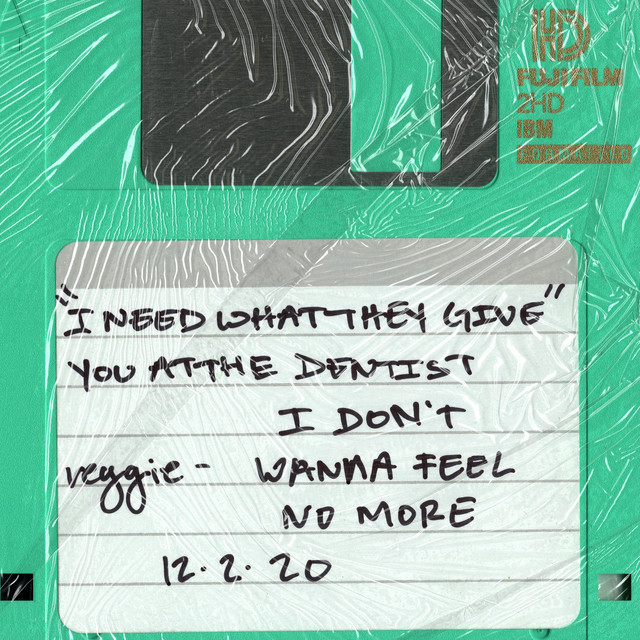 HD
FUJI FILM
2HD
IBM
"I NEED WHAT THEY GIVE"
YOU AT THE DENTIST
I DON'T
veggie - WANNA FEEL
NO MORE
12.2.20